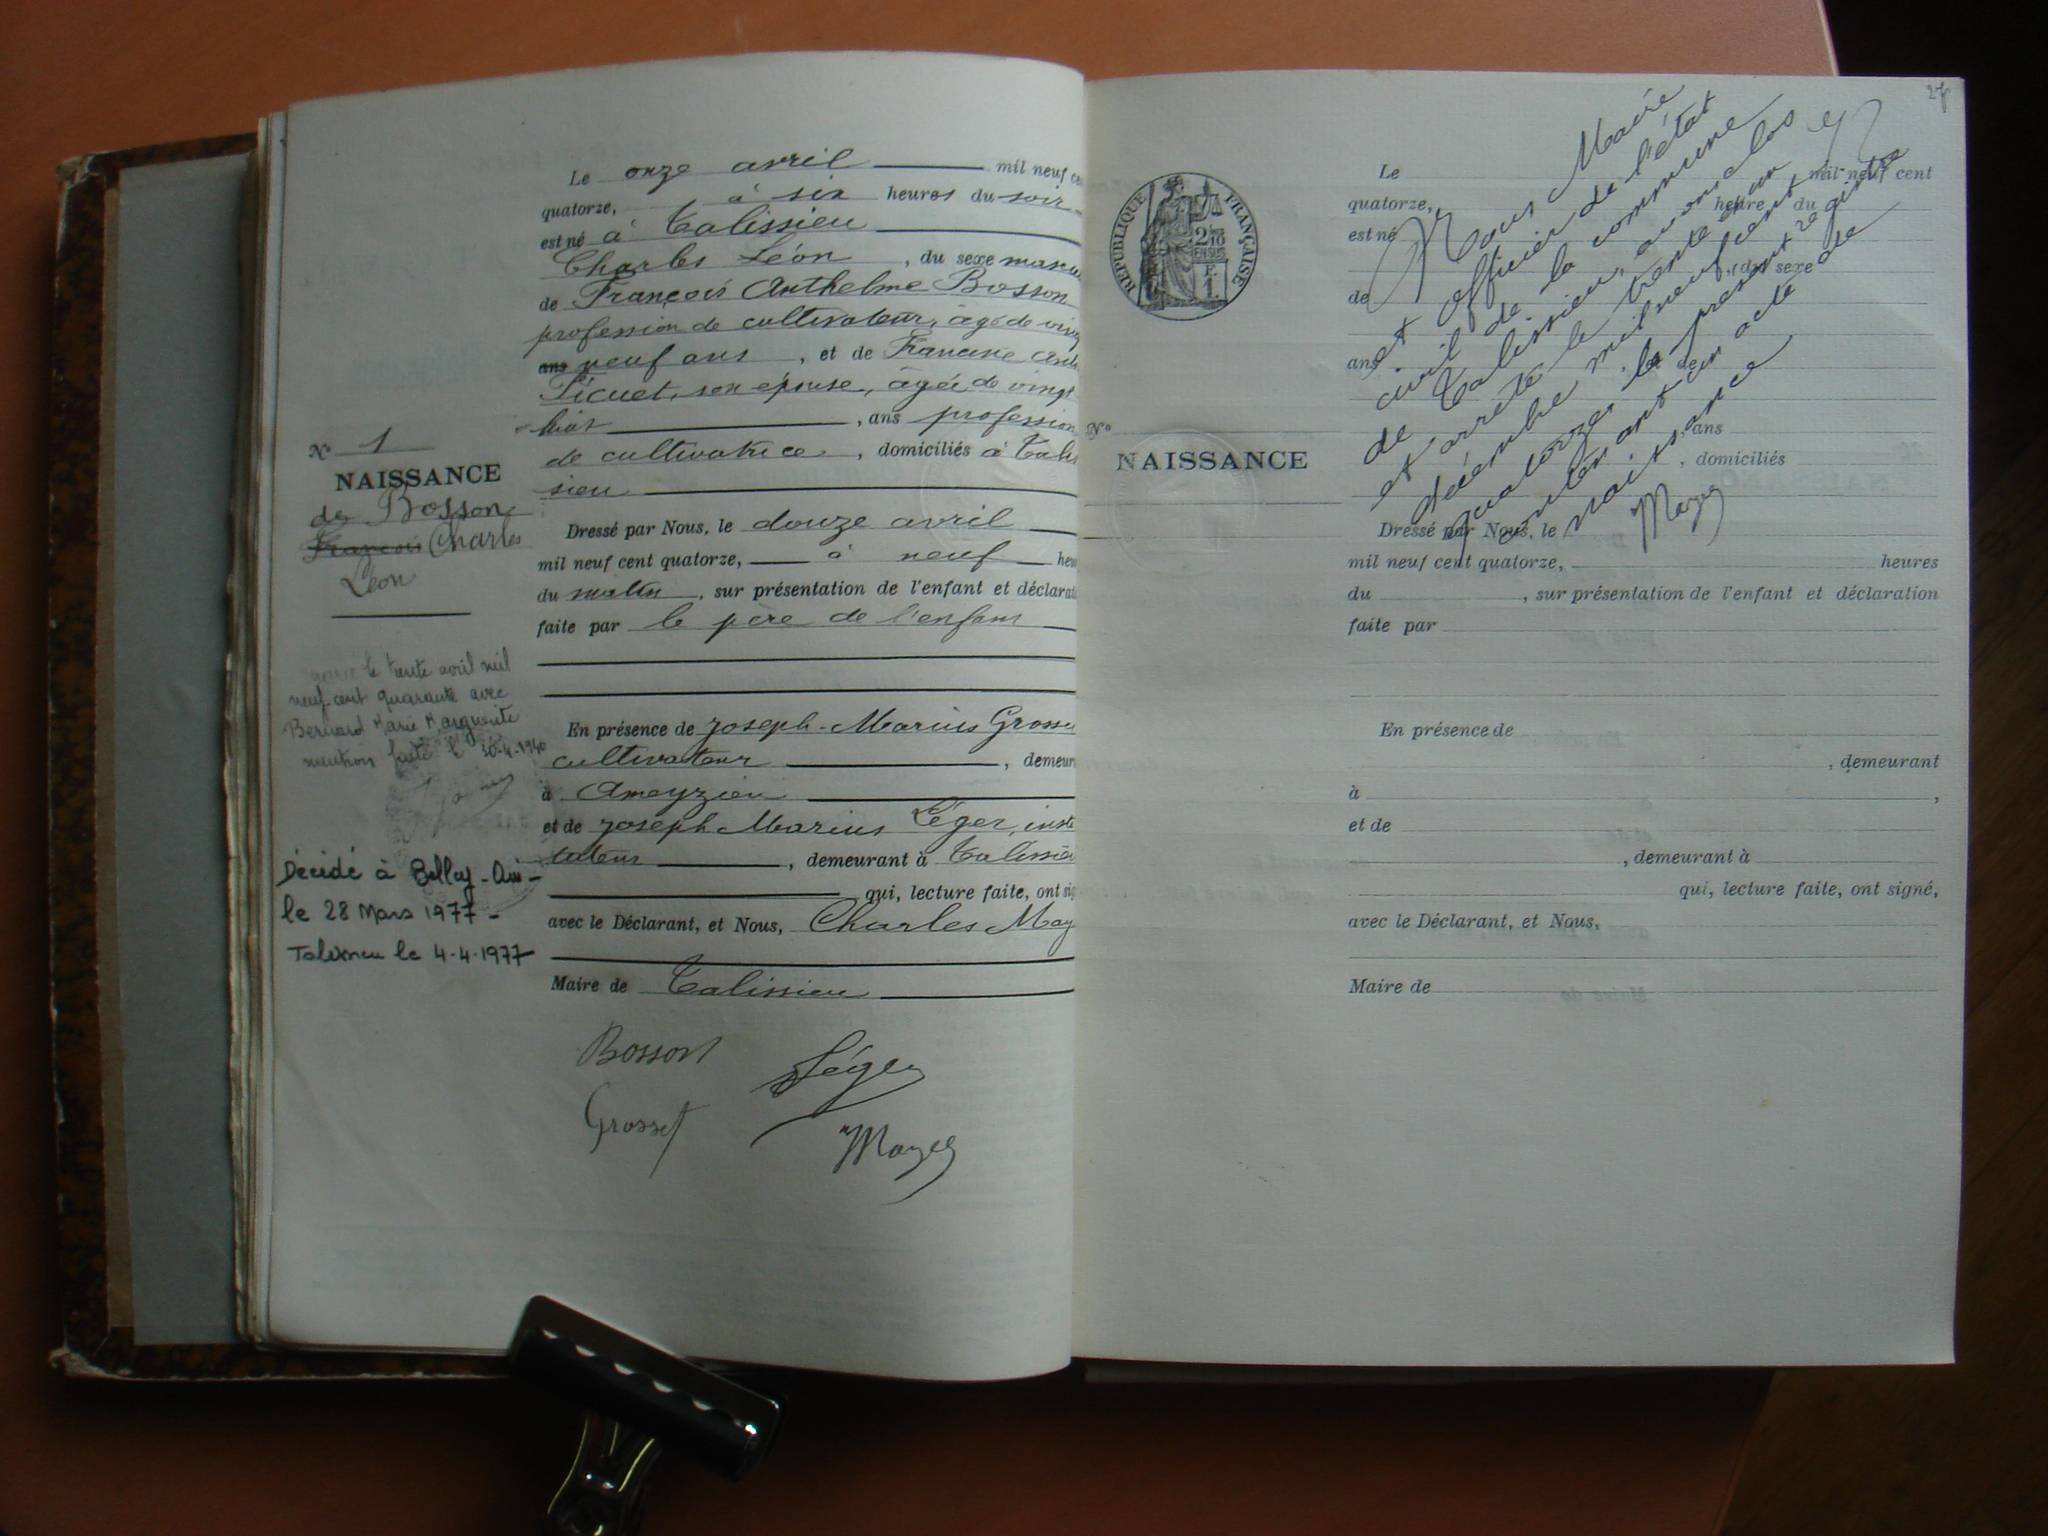 Le onze avril mil neuf ce
quatorze, à six heures du soir
est né à Talissieu
Charles Léon, du sexe mascu
de François Anthelme Bosson
profession de cultivateur, âgé de ving
ans neuf ans, et de Francine Anth
Picuet, son épouse, âgée de vingt
huit, ans profession
de cultivatrice, domiciliés à Talis
sieu
N° 1
NAISSANCE
de Bosson
François Charles
Léon
Dressé par Nous, le douze avril
mil neuf cent quatorze, à neuf heu
du matin, sur présentation de l'enfant et déclarat
faite par le père de l'enfant
le trente avril mil
neuf cent quarante avec
Bernard Marie Marguerite
mention faite le 30-4-1940
En présence de Joseph-Marius Grosse
cultivateur, demeur
à Ameyzieu
et de Joseph Marius Léger, insti
tuteur, demeurant à Talissieu
qui, lecture faite, ont sig
avec le Déclarant, et Nous, Charles May
Maire de Talissieu
Décédé à Belley-Ain-
le 28 Mars 1977-
Talissieu le 4-4-1977
Bosson Léger
Grosset Mayer
27
REPUBLIQUE FRANÇAISE
2/10 EN SUS
NAISSANCE
N°
Nous Maire
et officier de l'état
civil de la commune
de Talissieu, avons clos
et arrêté le trente un
décembre mil neuf cent
quatorze le présent registre
contenant un acte de
naissance
Le mil neuf cent
quatorze, heure du
est né
, du sexe
de
ans , et de
, ans
, domiciliés
Dressé par Nous, le
mil neuf cent quatorze, heures
du , sur présentation de l'enfant et déclaration
faite par
En présence de
, demeurant
à ,
et de
, demeurant à
qui, lecture faite, ont signé,
avec le Déclarant, et Nous,
Maire de